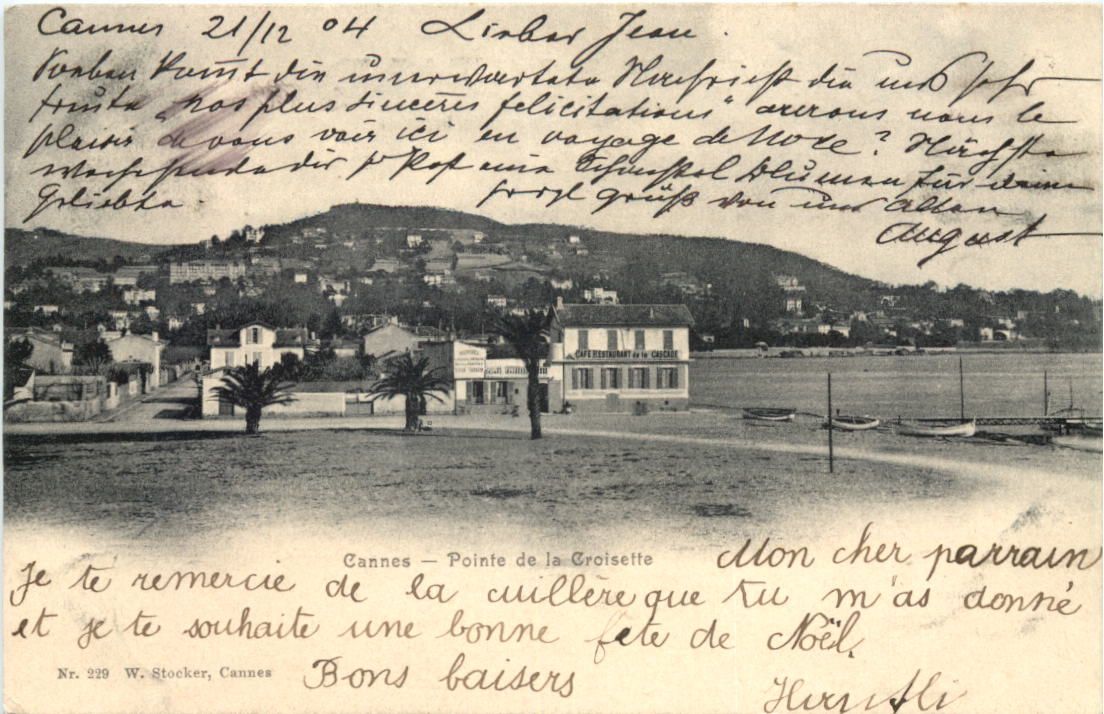 Cannes 21/12 04 Lieber Jean.
Soeben kommt die unerwartete Nachricht die uns sehr
freute "nos plus sinceres felicitations" aurons nous le
plaisir de vous voir ici en voyage de Noce? Nächste
wochesende dir p Post eine Schachtel Blumen für deine
Geliebte. gruß von uns Allen
August
CAFÉ RESTAURANT de la CASCADE
Cannes — Pointe de la Croisette
Mon cher parrain
Je te remercie de la cuillère que tu m'as donné
et je te souhaite une bonne fete de Noël.
Nr. 229 W. Stocker, Cannes
Bons baisers